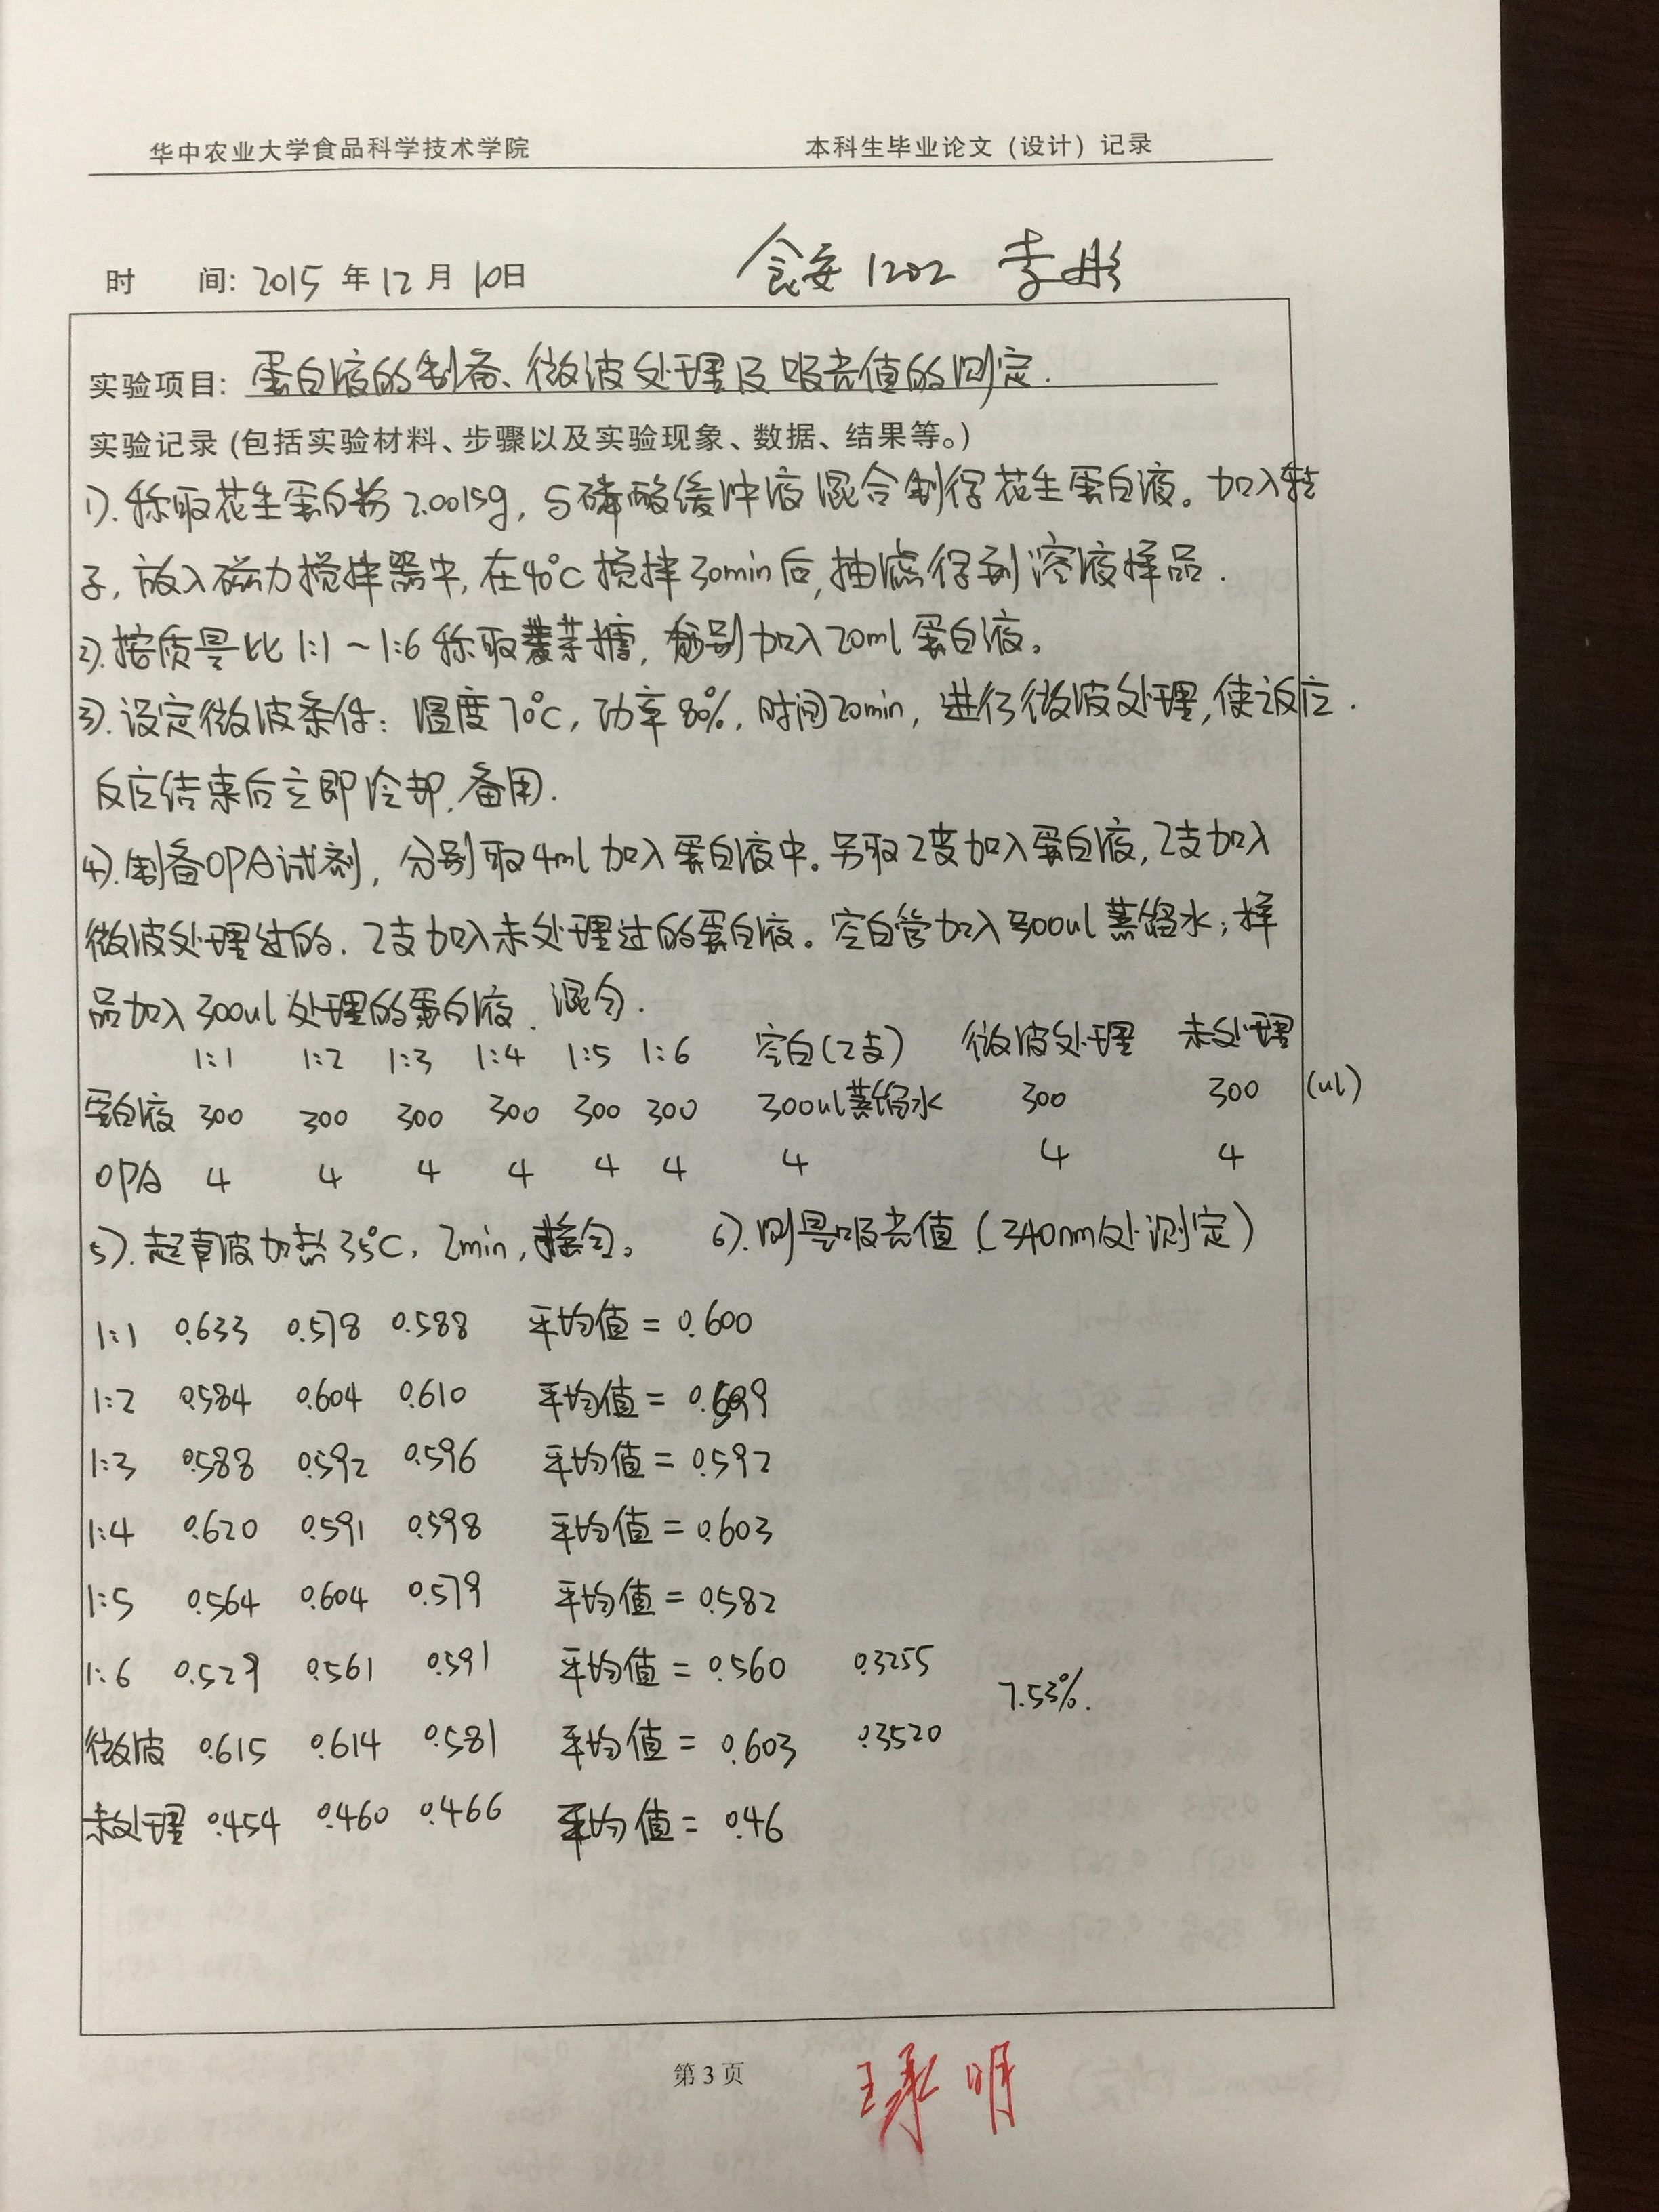 华中农业大学食品科学技术学院 本科生毕业论文（设计）记录
食安1202 李彤
时 间: 2015 年 12 月 10日
实验项目: 蛋白液的制备、微波处理及吸光值的测定.
实验记录 (包括实验材料、步骤以及实验现象、数据、结果等。)
1). 称取花生蛋白粉 2.0015g, 与磷酸缓冲液混合制得花生蛋白液。加入转
子, 放入磁力搅拌器中, 在40℃搅拌30min后, 抽滤得到溶液样品.
2). 按质量比 1:1 ~ 1:6 称取麦芽糖, 分别加入20ml蛋白液。
3). 设定微波条件: 温度70℃, 功率80%, 时间20min, 进行微波处理, 使反应.
反应结束后立即冷却, 备用.
4). 制备OPA试剂, 分别取4ml加入蛋白液中。另取2支加入蛋白液, 2支加入
微波处理过的, 2支加入未处理过的蛋白液。空白管加入300ul蒸馏水; 样
品加入300ul处理的蛋白液, 混匀.
1:1 1:2 1:3 1:4 1:5 1:6 空白(2支) 微波处理 未处理
蛋白液 300 300 300 300 300 300 300ul蒸馏水 300 300 (ul)
OPA 4 4 4 4 4 4 4 4 4
5). 超声波加热35℃, 2min, 摇匀。 6). 测量吸光值 (340nm处测定)
1:1 0.633 0.578 0.588 平均值 = 0.600
1:2 0.584 0.604 0.610 平均值 = 0.599
1:3 0.588 0.592 0.596 平均值 = 0.592
1:4 0.620 0.591 0.598 平均值 = 0.603
1:5 0.564 0.604 0.579 平均值 = 0.582
1:6 0.529 0.561 0.591 平均值 = 0.560 0.3255
7.53%.
微波 0.615 0.614 0.581 平均值 = 0.603 0.3520
未处理 0.454 0.460 0.466 平均值 = 0.46
第 3 页
明